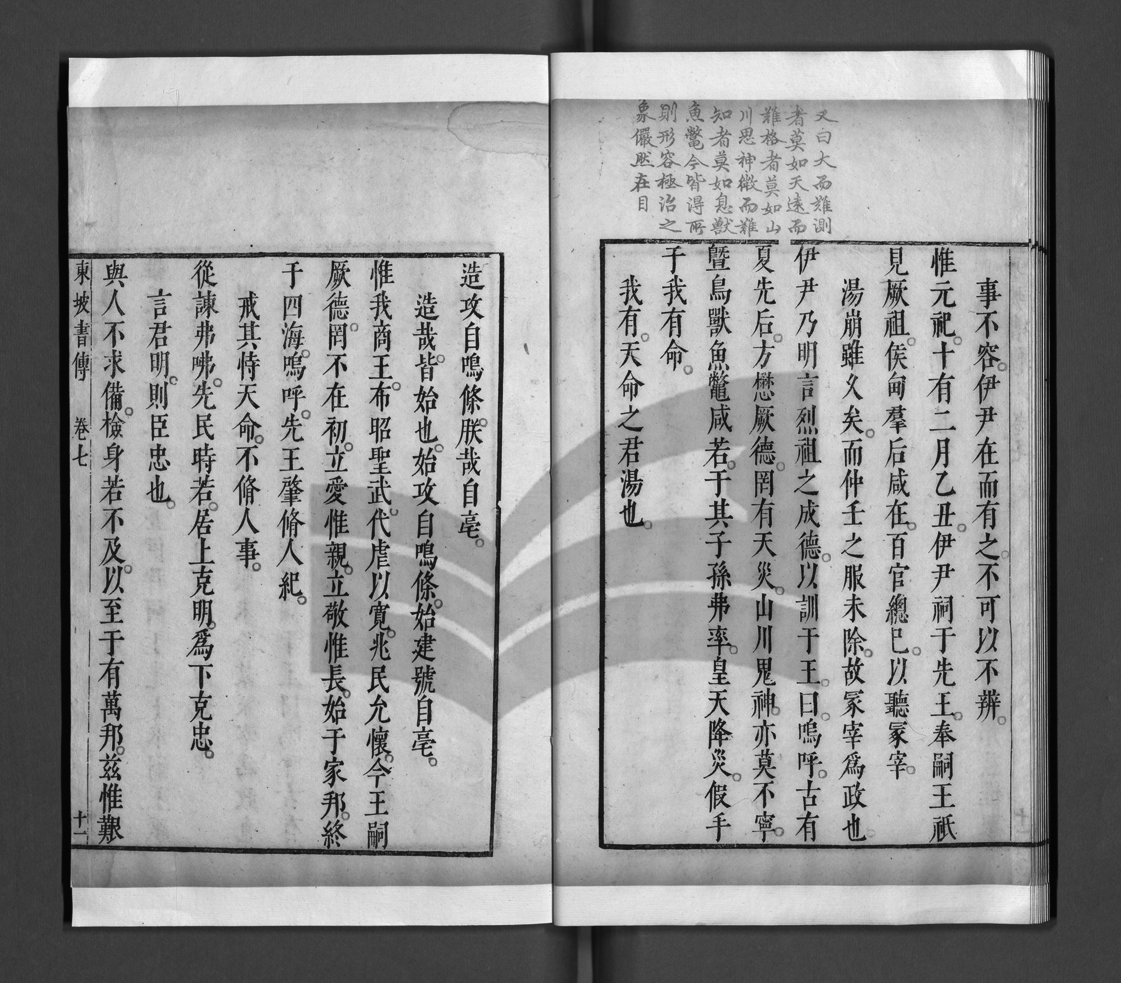 又曰大而難測
者莫如天遠而
難格者莫如山
川思神微而難
知者莫如息獸
魚鱉今皆淂所
則形容極治之
象儼然在目
事不容伊尹在而有之不可以不辨
惟元祀十有二月乙丑伊尹祠于先王奉嗣王祇
見厥祖侯甸羣后咸在百官總已以聽冢宰
湯崩雖久矣而仲壬之服未除故冢宰爲政也
伊尹乃明言烈祖之成德以訓于王曰嗚呼古有
夏先后方懋厥德罔有天災山川鬼神亦莫不寧
曁鳥獸魚鼈咸若于其子孫弗率皇天降災假手
于我有命
我有天命之君湯也
造攻自鳴條朕哉自亳
造哉皆始也始攻自鳴條始建號自亳
惟我商王布昭聖武代虐以寛兆民允懷今王嗣
厥德罔不在初立愛惟親立敬惟長始于家邦終
于四海嗚呼先王肇脩人紀
戒其恃天命不脩人事
從諫弗咈先民時若居上克明爲下克忠
言君明則臣忠也
與人不求備檢身若不及以至于有萬邦茲惟艱
東坡書傳 卷七 十一